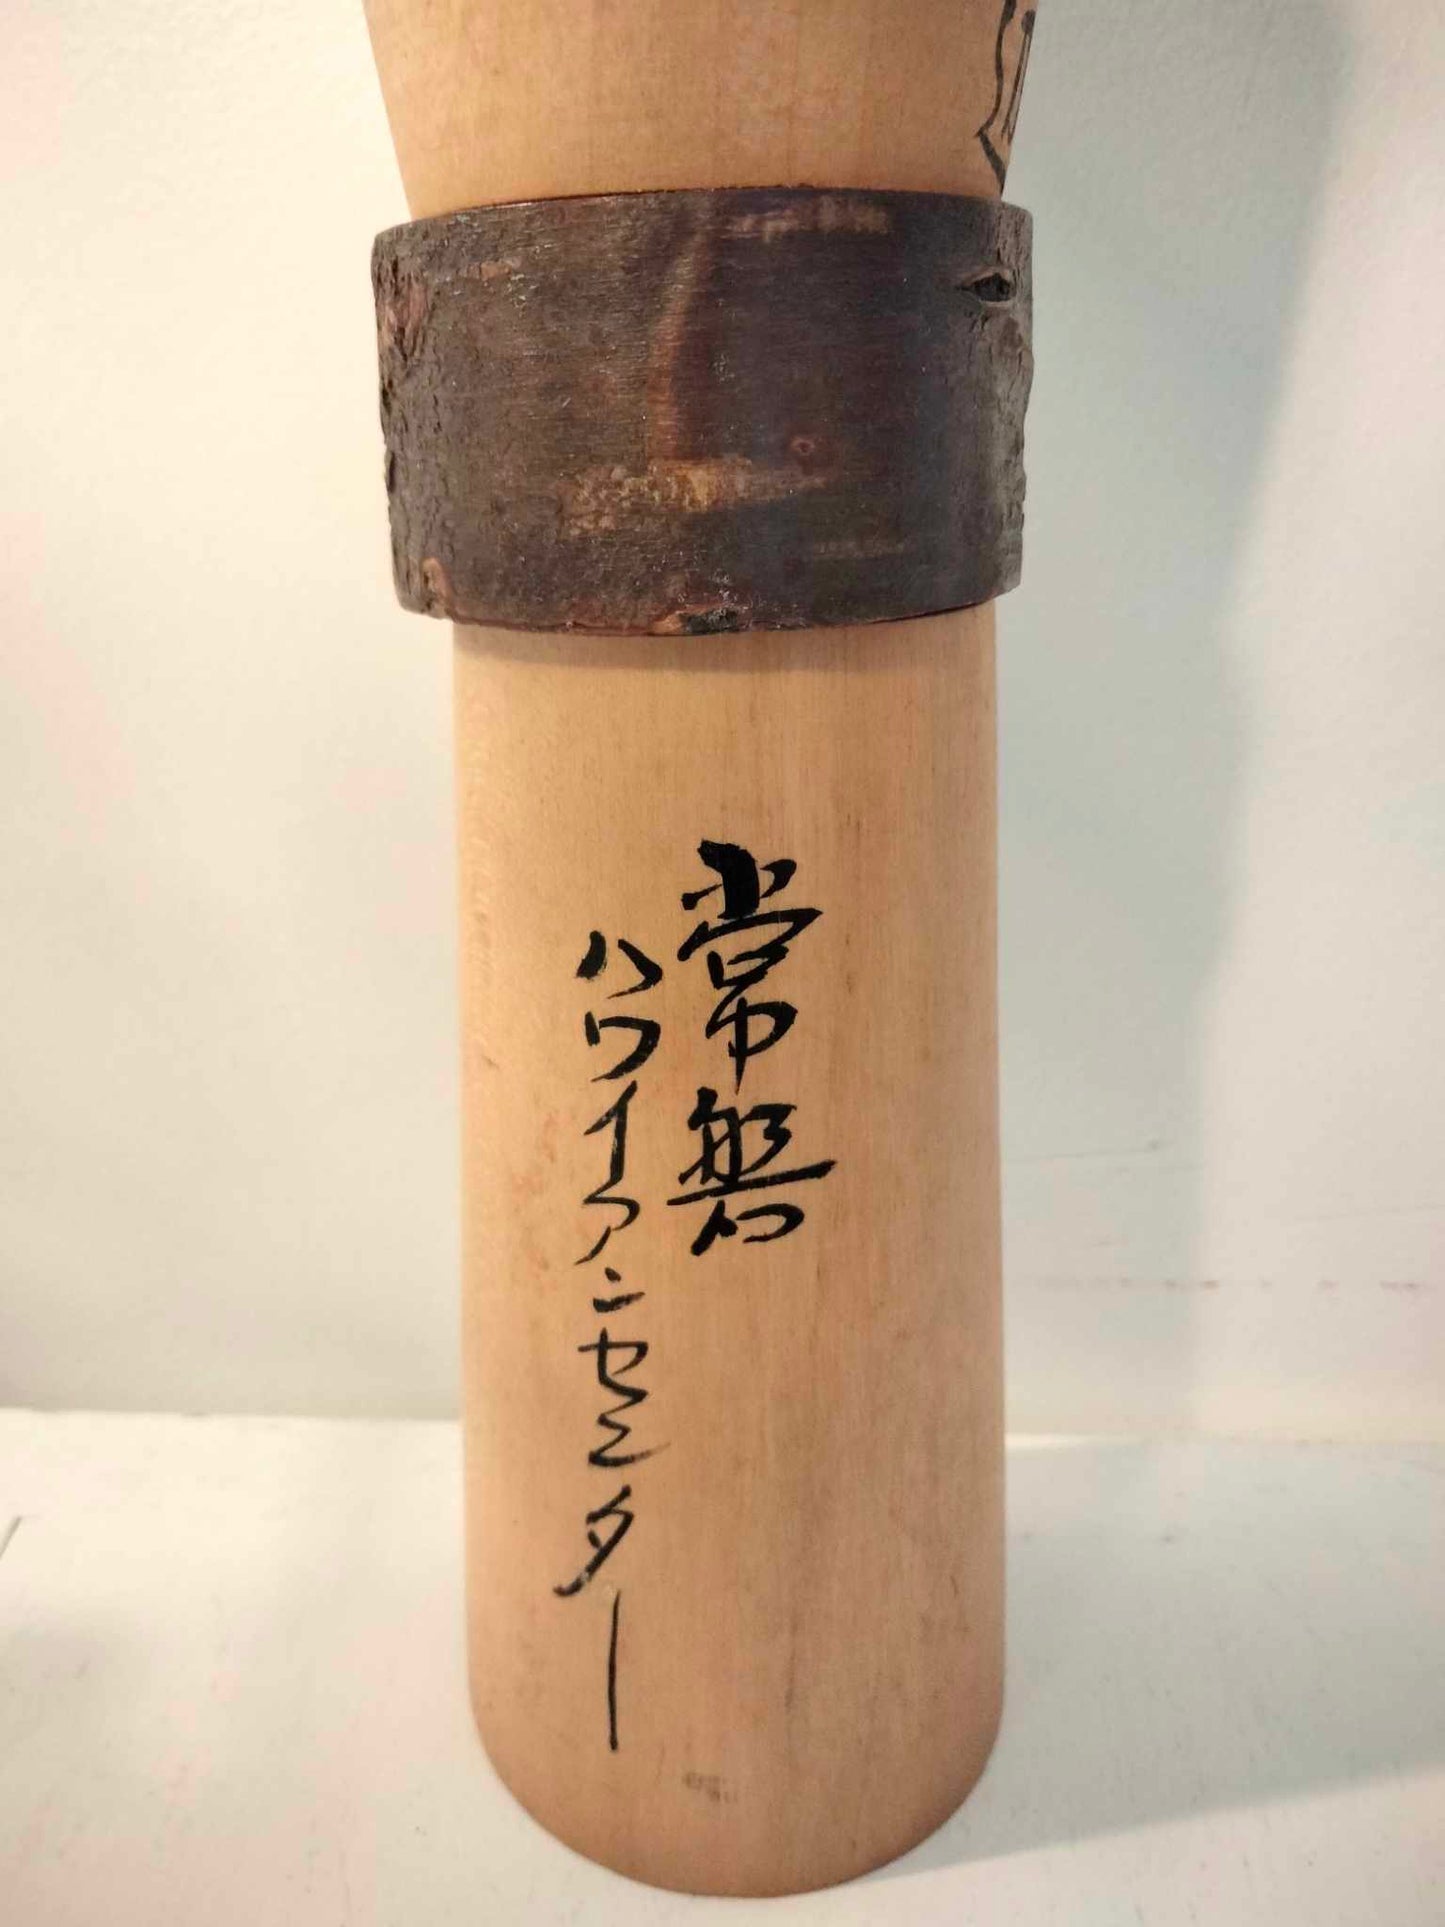 常磐
ハワイアンセンター